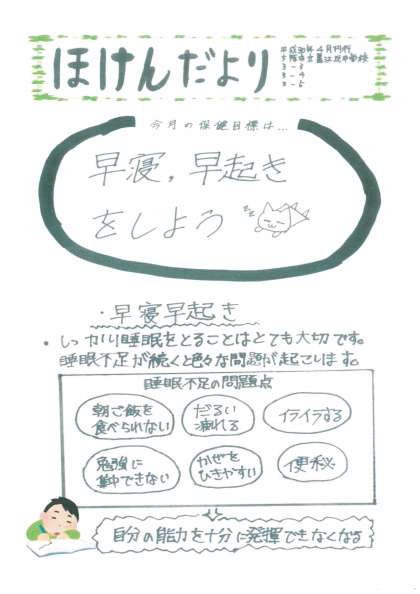 ほけんだより
平成30年4月刊行
3-3
3-4
3-5
今月の保健目標は…
早寝,早起き
をしよう
zz
・早寝早起き
・しっかり睡眠をとることはとても大切です。
睡眠不足が続くと色々な問題が起こります。
睡眠不足の問題点
朝ご飯を
食べられない
だるい
疲れる
イライラする
勉強に
集中できない
かぜを
ひきやすい
便秘
自分の能力を十分に発揮できなくなる